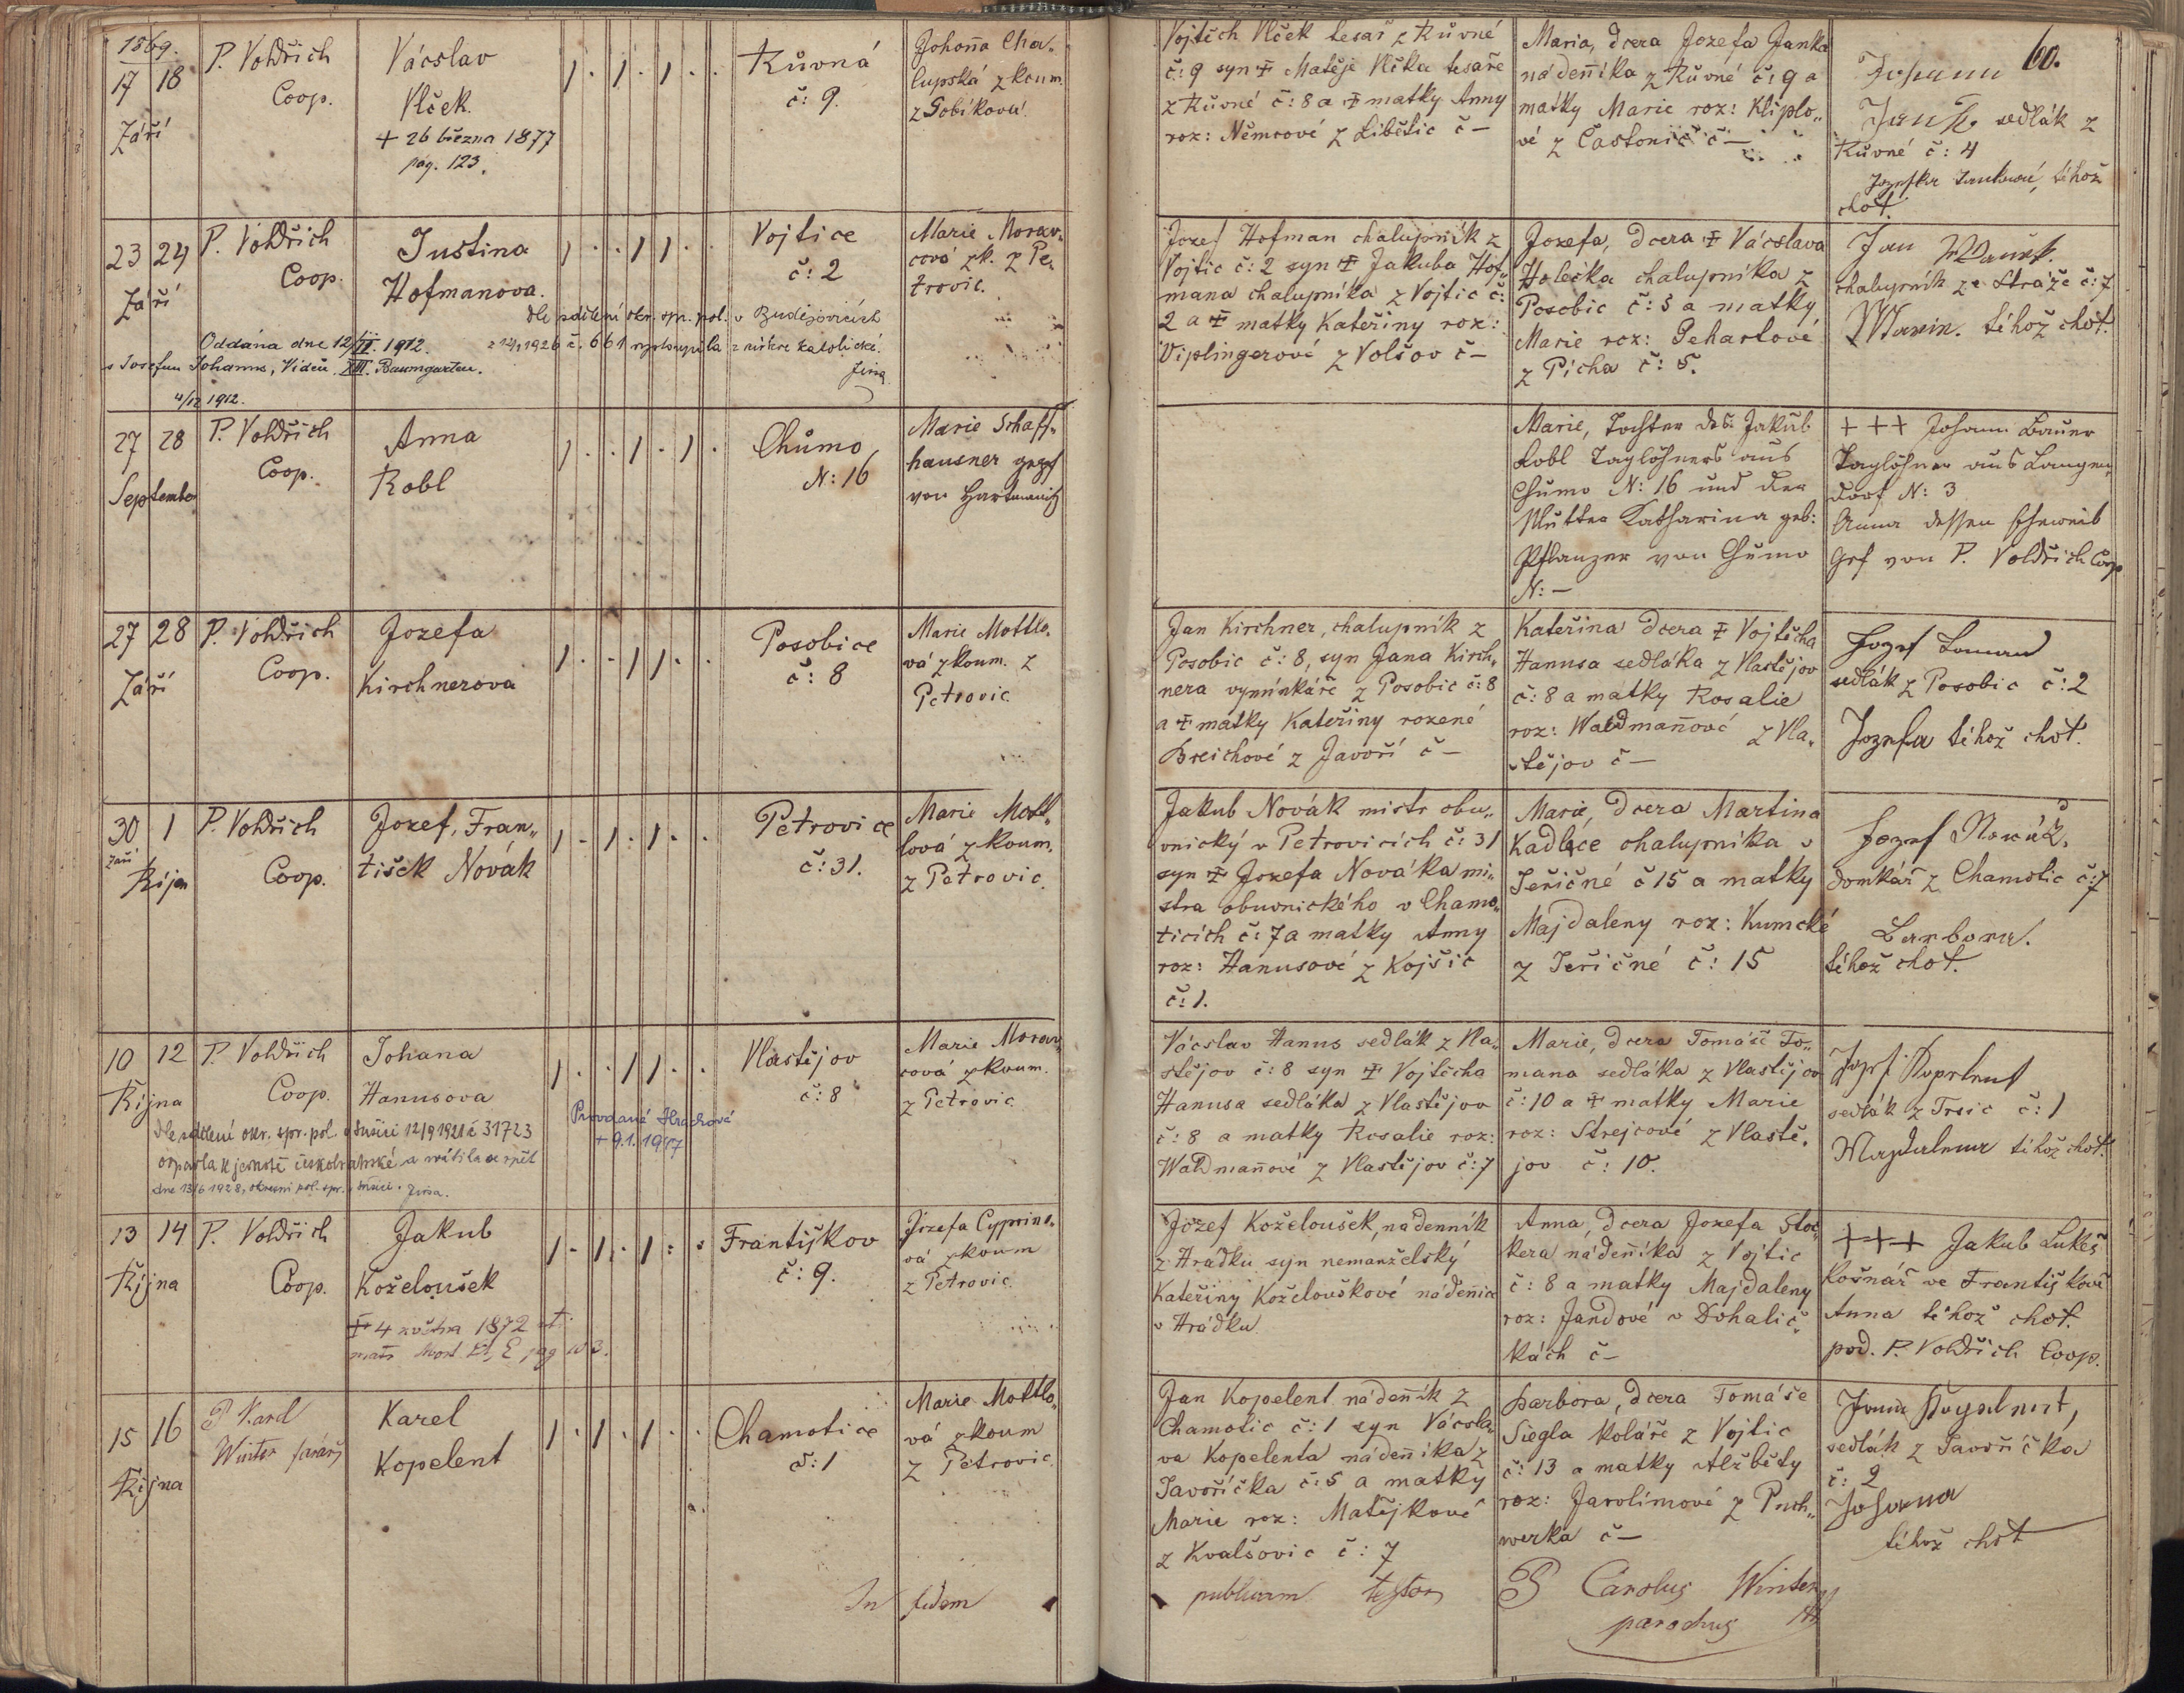 1869.
60.
17 18
Září
P. Voldřich
Coop.
Vácslav
Vlček.
+ 26 března 1877
pag. 123.
1 . 1 . 1 . .
Kůvná
č: 9.
Johana Cha„
lupská z koum.
z Bobikova.
Vojtěch Vlček tesař z Kůvné
č: 9 syn ‡ Matěje Vlčka tesaře
z Kůvné č: 8 a ‡ matky Anny
roz: Němcové z Libětic č –
Maria, dcera Jozefa Janka
nádeníka z Kůvné č: 9 a
matky Marie roz: Kliplo„
vé z Častonic č –
Johann
Jank sedlák z
Kůvné č: 4
Jozefka Jankova, téhož
choť.
23 24
Září
P. Voldřich
Coop.
Justina
Hofmanova.
dle sdělení okr. spr. pol. v Budějovicích
z 14/1 1926 č. 661 vystoupila z církve katolické.
Jirsa
Oddána dne 12/II. 1912.
s Josefem Johanns, Vídeň XIII. Baumgarten.
4/12 1912.
1 . . 1 1 . .
Vojtice
č: 2
Marie Morav„
cová zk. z Pe„
trovic.
Jozef Hofman chalupník z
Vojtic č: 2 syn ‡ Jakuba Hof„
mana chalupníka z Vojtic č:
2 a ‡ matky Kateřiny roz:
Viplingerové z Volšov č –
Jozefa, dcera ‡ Vácslava
Holečka chalupníka z
Posobic č: 3 a matky
Marie roz: Pehartové
z Pícha č: 5.
Jan
chalupník ze Stráže č: 7
Marie. téhož choť.
27 28
September
P. Voldřich
Coop.
Anna
Robl
1 . . 1 . 1 .
Chumo
N: 16
Marie Schaff„
hausner gepf
von Hartmanitz
Marie, Tochter des Jakub
Robl Taglöhners aus
Chumo N: 16 und der
Mutter Katharina geb:
Pflanzer von Chumo
N: –
+++ Johann Bauer
Taglöhner aus Langen„
dorf N: 3
Anna dessen Eheweib
gef von P. Voldřich Coop
27 28
Září
P. Voldřich
Coop.
Jozefa
Kirchnerova
1 . . 1 1 . .
Posobice
č: 8
Marie Mottlo„
vá zkoum. z
Petrovic
Jan Kirchner, chalupník z
Posobic č: 8, syn Jana Kirch„
nera vyminkáře z Posobic č: 8
a ‡ matky Kateřiny rozené
Breichové z Javoří č –
Kateřina dcera ‡ Vojtěcha
Hanusa sedláka z Vlastějov
č: 8 a matky Rosalie
roz: Waldmanové z Vla„
stějov č –
Jozef Toman
sedlák z Posobic č: 2
Jozefa téhož choť.
30 1
září
Říjen
P. Voldřich
Coop.
Jozef, Fran„
tišek Novák
1 . 1 . 1 . .
Petrovice
č: 31.
Marie Mott„
lová zkoum.
z Petrovic.
Jakub Novák mistr obu„
vnický v Petrovicích č: 31
syn ‡ Jozefa Nováka mi„
stra obuvnického v Chamo„
ticích č: 7 a matky Anny
roz: Hanusové z Kojšic
č: 1.
Marie, dcera Martina
Kadlece chalupníka v
Jeřičné č 15 a matky
Majdaleny roz: Kumcké
z Jeřičné č: 15
Jozef Novák,
domkář z Chamotic č: 7
Barbora.
téhož choť.
10 12
Října
P. Voldřich
Coop.
Johana
Hanusova
dle sdělení okr. spr. pol. v Sušici 12/9 1921 č 31723
odpadla k jednotě českobratrské a vrátila se zpět
dne 13/6 1928, okresní pol. spr. v Sušici. Jirsa.
Provdané Hrachové
+ 9.1. 1947
1 . . 1 1 . .
Vlastějov
č: 8
Marie Morav„
cová zkoum.
z Petrovic
Vácslav Hanus sedlák z Vla„
stějov č: 8 syn ‡ Vojtěcha
Hanusa sedláka z Vlastějov
č: 8 a matky Rosalie roz:
Waldmanové z Vlastějov č: 7
Marie, dcera Tomáše To„
mana sedláka z Vlastějov
č: 10 a ‡ matky Marie
roz: Strejcové z Vlastě„
jov č: 10.
Jozef Koprlent
sedlák z Trsic č: 1
Magdalena téhož choť.
13 14
Října
P. Voldřich
Coop.
Jakub
Koželoušek
‡ 4 května 1872
matr. Mort
1 . 1 . 1 . .
Františkov
č: 9.
Jozefa Cyprino„
vá zkoum
z Petrovic.
Jozef Koželoušek, nádenník
z Hrádku syn nemanželský
Kateřiny Koželouškové nádenice
v Hrádku
Anna, dcera Jozefa Stoc„
kera nádeníka z Vojtic
č: 8 a matky Majdaleny
roz: Jandové v Dohalič„
kách č –
+++ Jakub Lukeš
košnář ve Františkově
Anna téhož choť.
pod. P. Voldřich Coop.
15 16
Října
P Karel
Winter farář
Karel
Kopelent
1 . 1 . 1 . .
Chamotice
č: 1
Marie Mottlo„
vá zkoum
z Petrovic.
Jan Kopelent nádeník z
Chamotic č: 1 syn Vácsla„
va Kopelenta nádeníka z
Javoříčka č: 5 a matky
Marie roz: Matějkové
z Kvalšovic č: 7
Barbora, dcera Tomáše
Siegla koláře z Vojtic
č: 13 a matky Alžběty
roz: Jarolímové z Puch„
werka č –
Jan Kopelent,
sedlák z Javoříčka
č: 2
Johanna
téhož choť
In fidem
publicam testor
P Carolus Winter
parochus